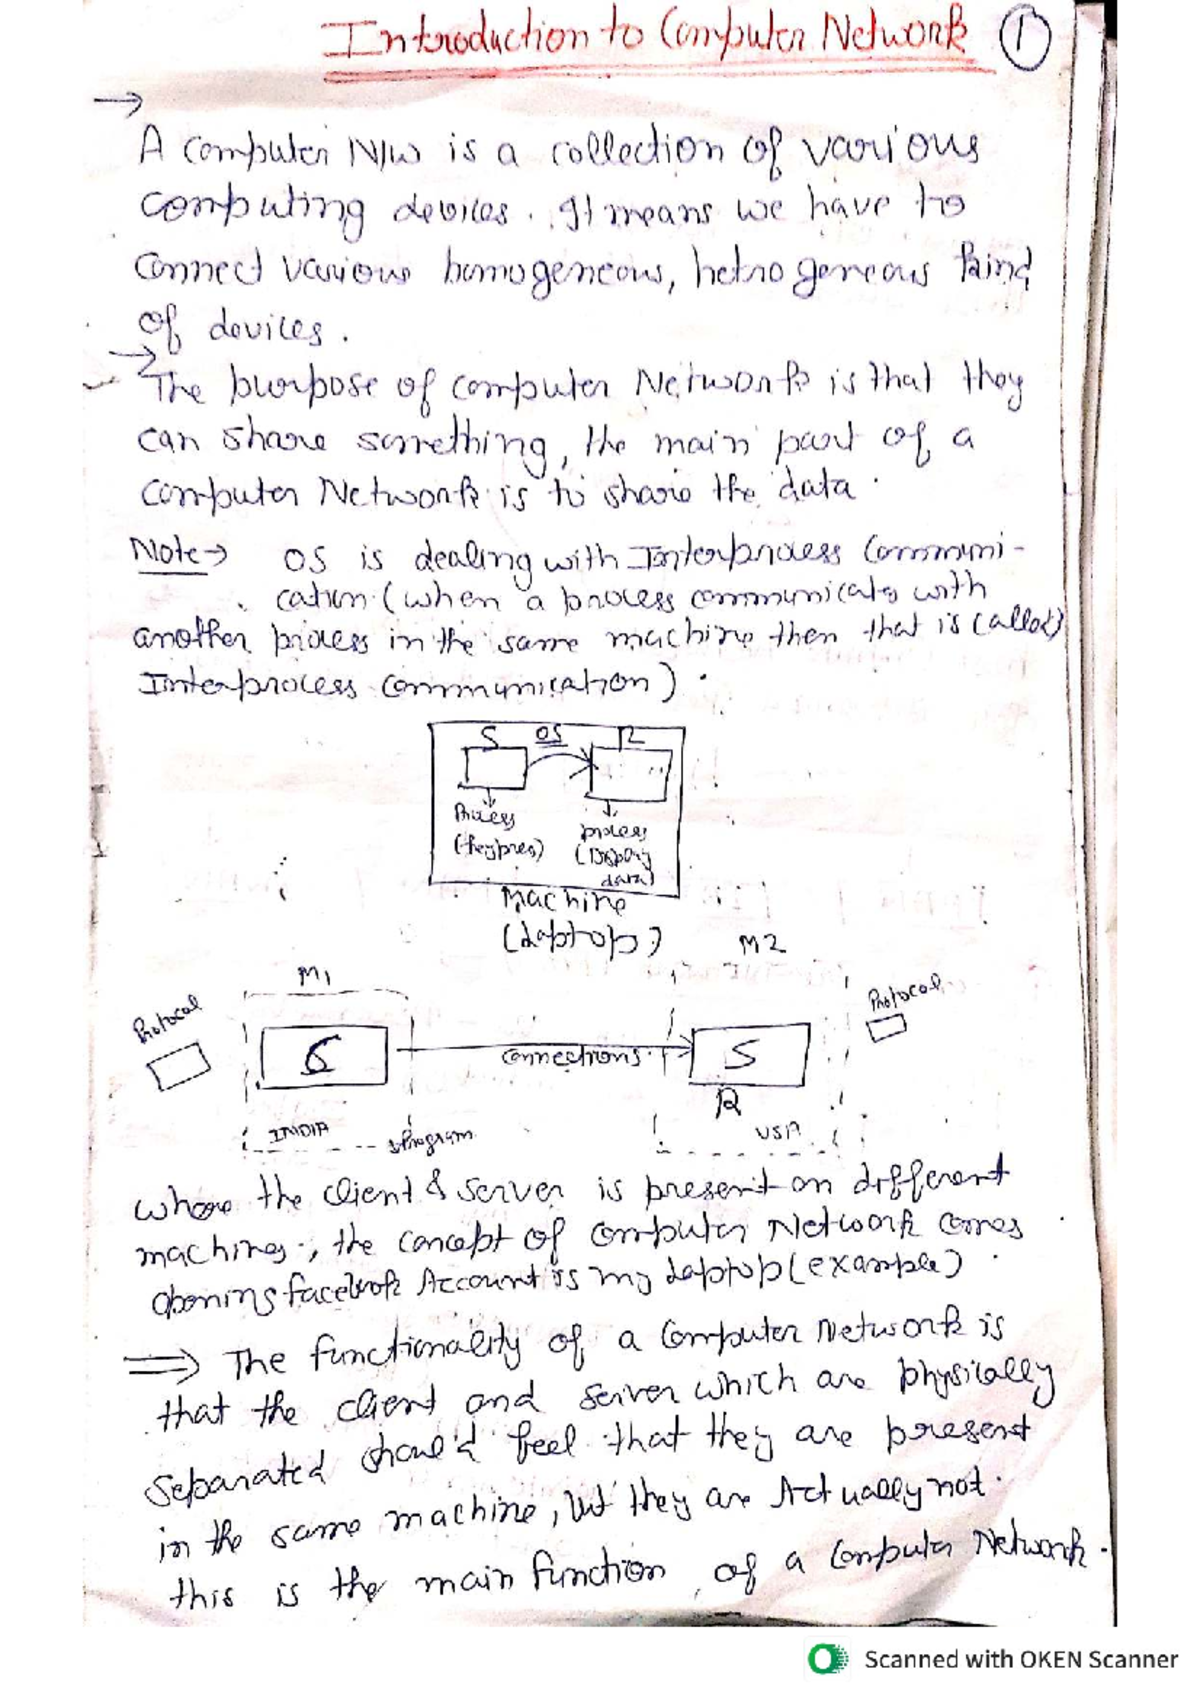 Introduction to Computer Network 1
→
A computer N/w is a collection of various
computing devices. It means we have to
connect various homogeneous, hetrogeneous kind
of devices.
→
The purpose of computer Network is that they
can share something, the main part of a
computer Network is to share the data.
Note→ OS is dealing with Interprocess Communi-
cation (when a process communicates with
another process in the same machine then that is called
Interprocess communication).
S OS R
Process
(keypres)
process
(Display
data)
Machine
(Laptop)
M1
M2
Protocol
Protocol
C
connections
S
R
INDIA
Program
USA
where the client & server is present on different
machines, the concept of computer Network comes
opening facebook Account is my Laptop (example)
⇒ The functionality of a Computer Network is
that the client and server which are physically
separated should feel that they are present
in the same machine, but they are Actually not.
this is the main function of a Computer Network.
Scanned with OKEN Scanner